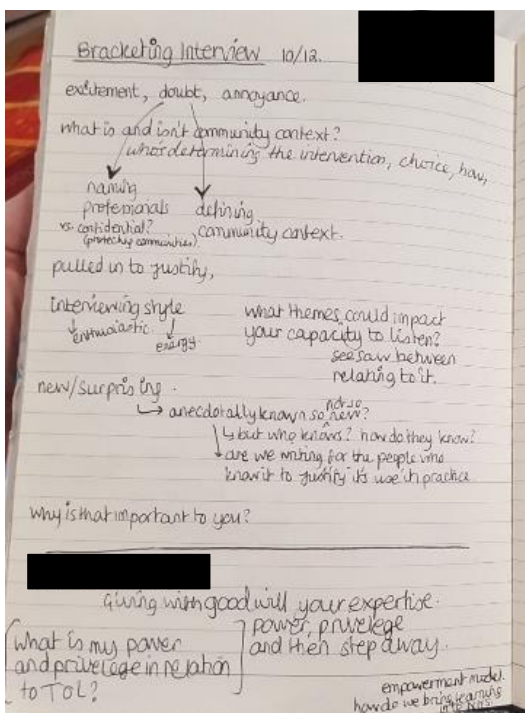 Bracketing Interview 10/12.
excitement, doubt, annoyance.
what is and isn't community context?
who's determining the intervention, choice, how,
naming
professionals
vs. confidential?
(protecting communities)
defining
community context.
pulled in to justify,
Interviewing style
enthusiastic
energy
what themes could impact
your capacity to listen?
see saw between
relating to it.
new/surprising.
anecdotally known so not so new?
but who knows? how do they know?
are we writing for the people who
know it to justify its use in practice
why is that important to you?
Giving with good will your expertise.
power, privelege
and then step away.
What is my power
and privelege in relation
to TOL?
empowerment model.
how do we bring learning